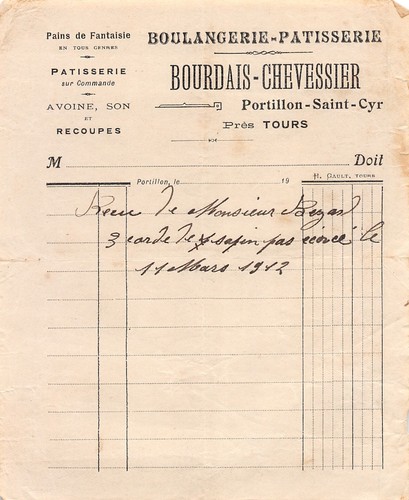 Pains de Fantaisie
EN TOUS GENRES
PATISSERIE
sur Commande
AVOINE, SON
ET
RECOUPES
BOULANGERIE-PATISSERIE
BOURDAIS-CHEVESSIER
Portillon-Saint-Cyr
Près TOURS
M Doit
Portillon, le 19
H. GAULT, TOURS
Recu de Monsieur
3 corde de sapin pas le
11 Mars 1912